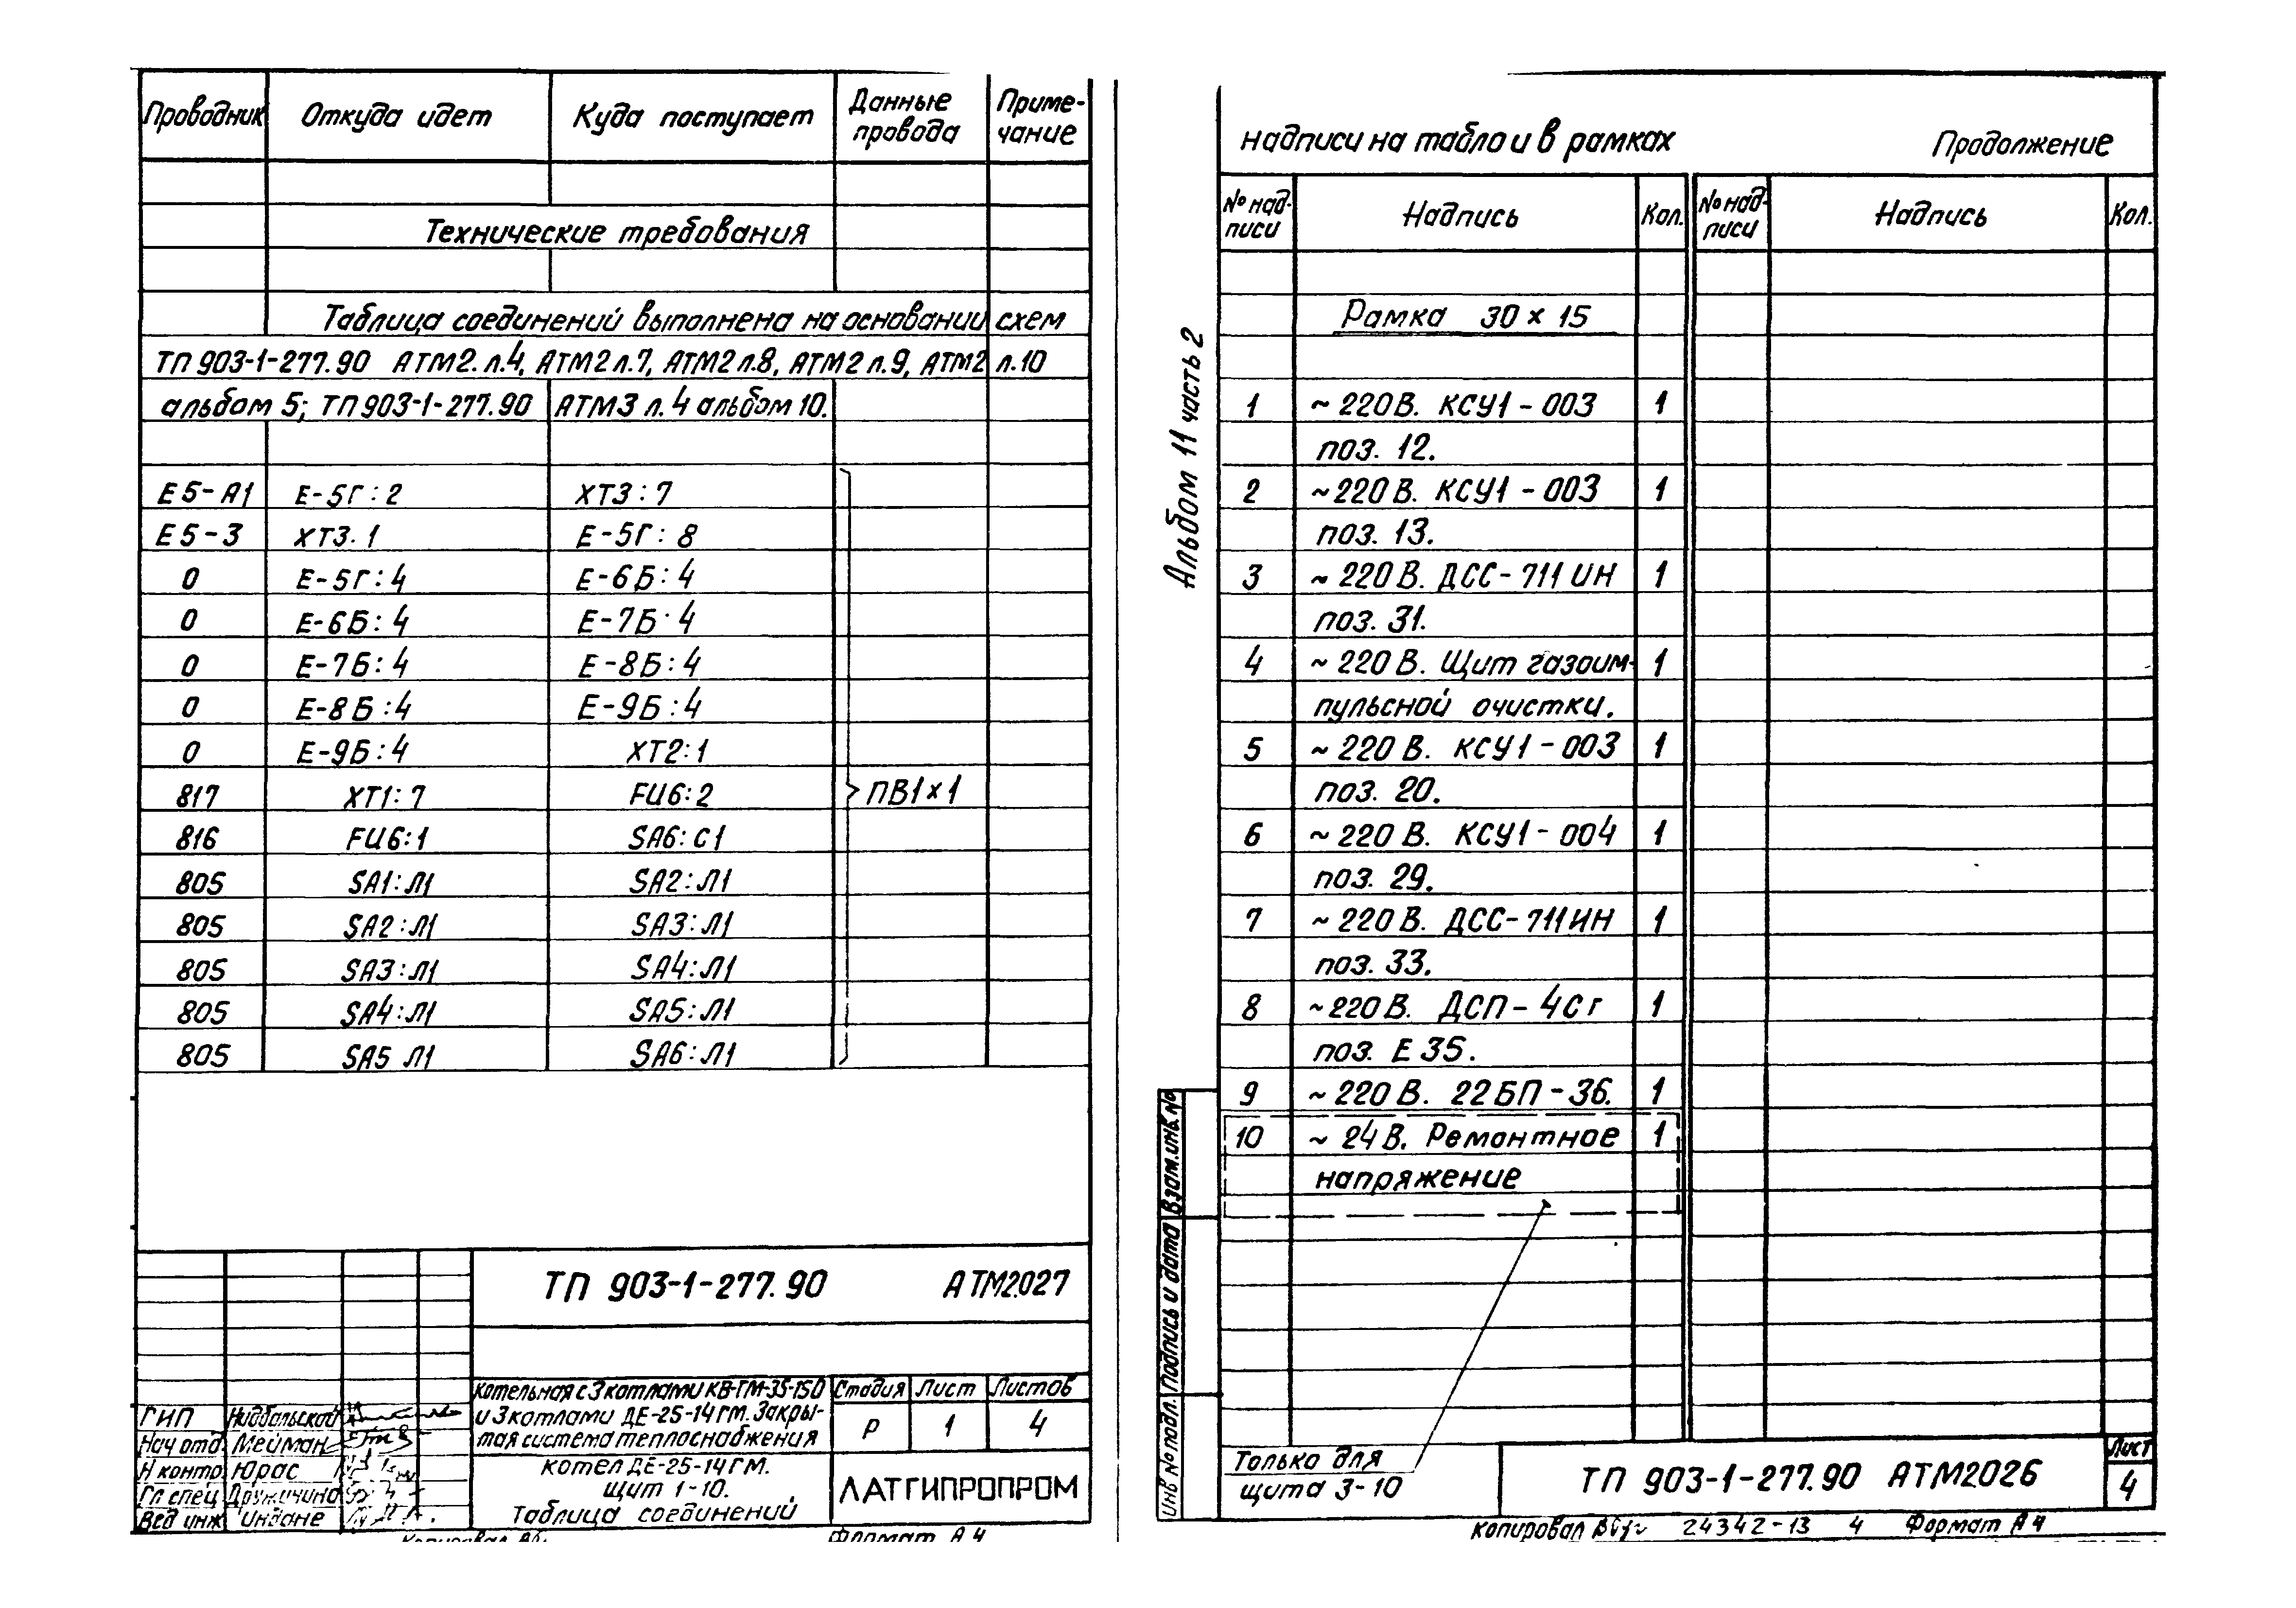 Проводник Откуда идет Куда поступает Данные провода Приме-чание
Технические требования
Таблица соединений выполнена на основании схем
ТП 903-1-277.90 АТМ2. л.4, АТМ2 л.7, АТМ2 л.8, АТМ2 л.9, АТМ2 л.10
альбом 5; ТП 903-1-277.90 АТМ3 л.4 альбом 10.
Е5-А1 Е-5Г:2 ХТ3:7
Е5-3 ХТ3.1 Е-5Г:8
0 Е-5Г:4 Е-6Б:4
0 Е-6Б:4 Е-7Б·4
0 Е-7Б:4 Е-8Б:4
0 Е-8Б:4 Е-9Б:4
0 Е-9Б:4 ХТ2:1
817 ХТ1:7 FU6:2 ПВ1х1
816 FU6:1 SA6:С1
805 SA1:Л1 SA2:Л1
805 SA2:Л1 SA3:Л1
805 SA3:Л1 SA4:Л1
805 SA4:Л1 SA5:Л1
805 SA5 Л1 SA6:Л1
ТП 903-1-277.90 АТМ2.027
Котельная с 3 котлами КВ-ГМ-35-150
и 3 котлами ДЕ-25-14ГМ. Закры-
тая система теплоснабжения
Стадия Лист Листов
Р 1 4
ГИП
Нач отд Мейман
Н контр Юрас
Гл спец
Вед инж
Котел ДЕ-25-14ГМ.
щит 1-10.
Таблица соединений
ЛАТГИПРОПРОМ
Копировал
Формат А4
Альбом 11 часть 2
Надписи на табло и в рамках Продолжение
№ над-писи Надпись Кол. № над-писи Надпись Кол.
Рамка 30 х 15
1 ~ 220 В. КСУ1-003 1
поз. 12.
2 ~ 220 В. КСУ1-003 1
поз. 13.
3 ~ 220 В. ДСС-711 ИН 1
поз. 31.
4 ~ 220 В. Щит газоим- 1
пульсной очистки.
5 ~ 220 В. КСУ1-003 1
поз. 20.
6 ~ 220 В. КСУ1-004 1
поз. 29.
7 ~ 220 В. ДСС-711ИН 1
поз. 33.
8 ~ 220 В. ДСП-4Сг 1
поз. Е 35.
9 ~ 220 В. 22 БП-36. 1
10 ~ 24 В. Ремонтное 1
напряжение
Только для
щита 3-10
Взам.инв.№
Подпись и дата
Инв № подл.
ТП 903-1-277.90 АТМ2.026
Лист
4
Копировал 24342-13 4 Формат А4